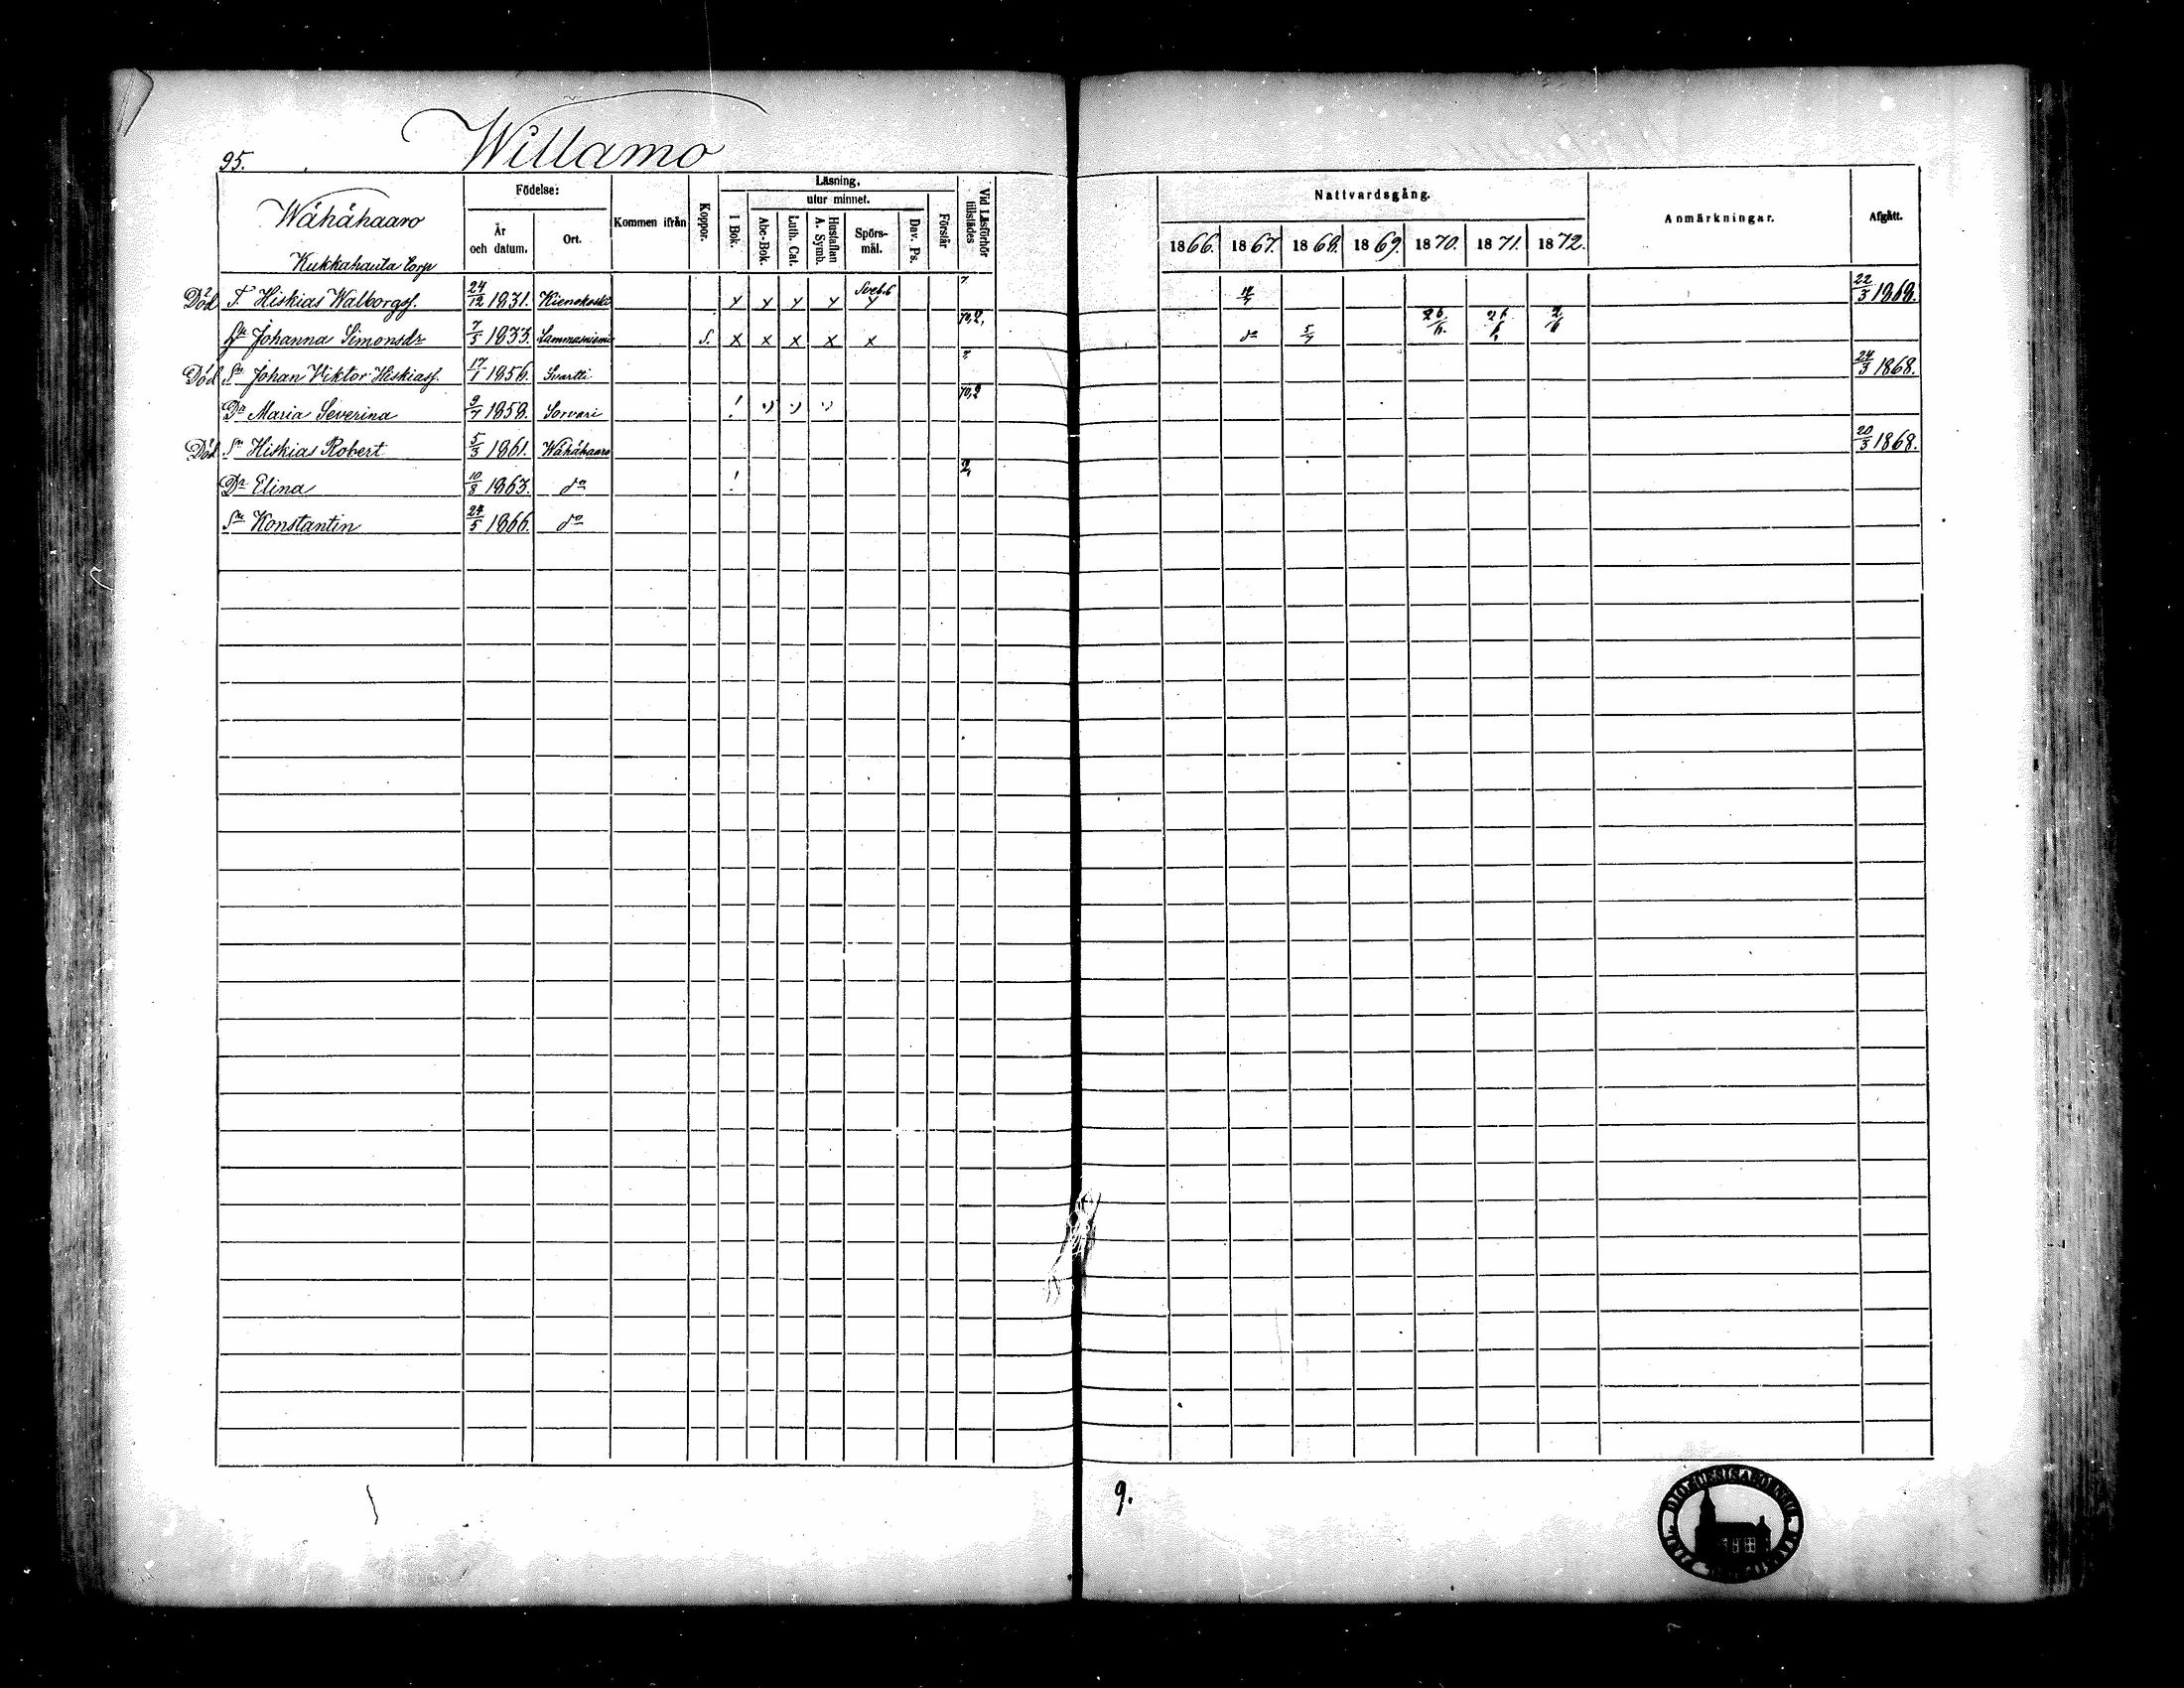 95.
Willamo
Wähähaaro
Kukkahauta torp
Födelse:
År och datum.
Ort.
Kommen ifrån
Koppor.
Läsning,
utur minnet.
I Bok.
Abc-Bok.
Luth. Cat.
Hustaflan A. Symb.
Spörsmål.
Dav. Ps.
Förstår
Vid Läsförhör tillstädes
Nattvardsgång.
1866. 1867. 1868. 1869. 1870. 1871. 1872.
Anmärkningar.
Afgått.
Död 2 T. Hiskias Walborgss. 24/12 1831. Kienokoski y y y y Sveb.6 y 7 14/7 22/3 1868.
Hu Johanna Simonsdr 7/5 1833. Lammasniemi S. x x x x x 70,2, do 5/7 26/6. 26/6 2/6
Död Sn Johan Viktor Hiskiass. 17/1 1856. Svartti 7 24/3 1868.
Dr Maria Severina 9/7 1858. Sorvari ! 70,2
Död Sn Hiskias Robert 5/3 1861. Wähähaaro 20/3 1868.
Dr Elina 10/8 1863. do ! 2,
Sn Konstantin 24/5 1866. do
9.